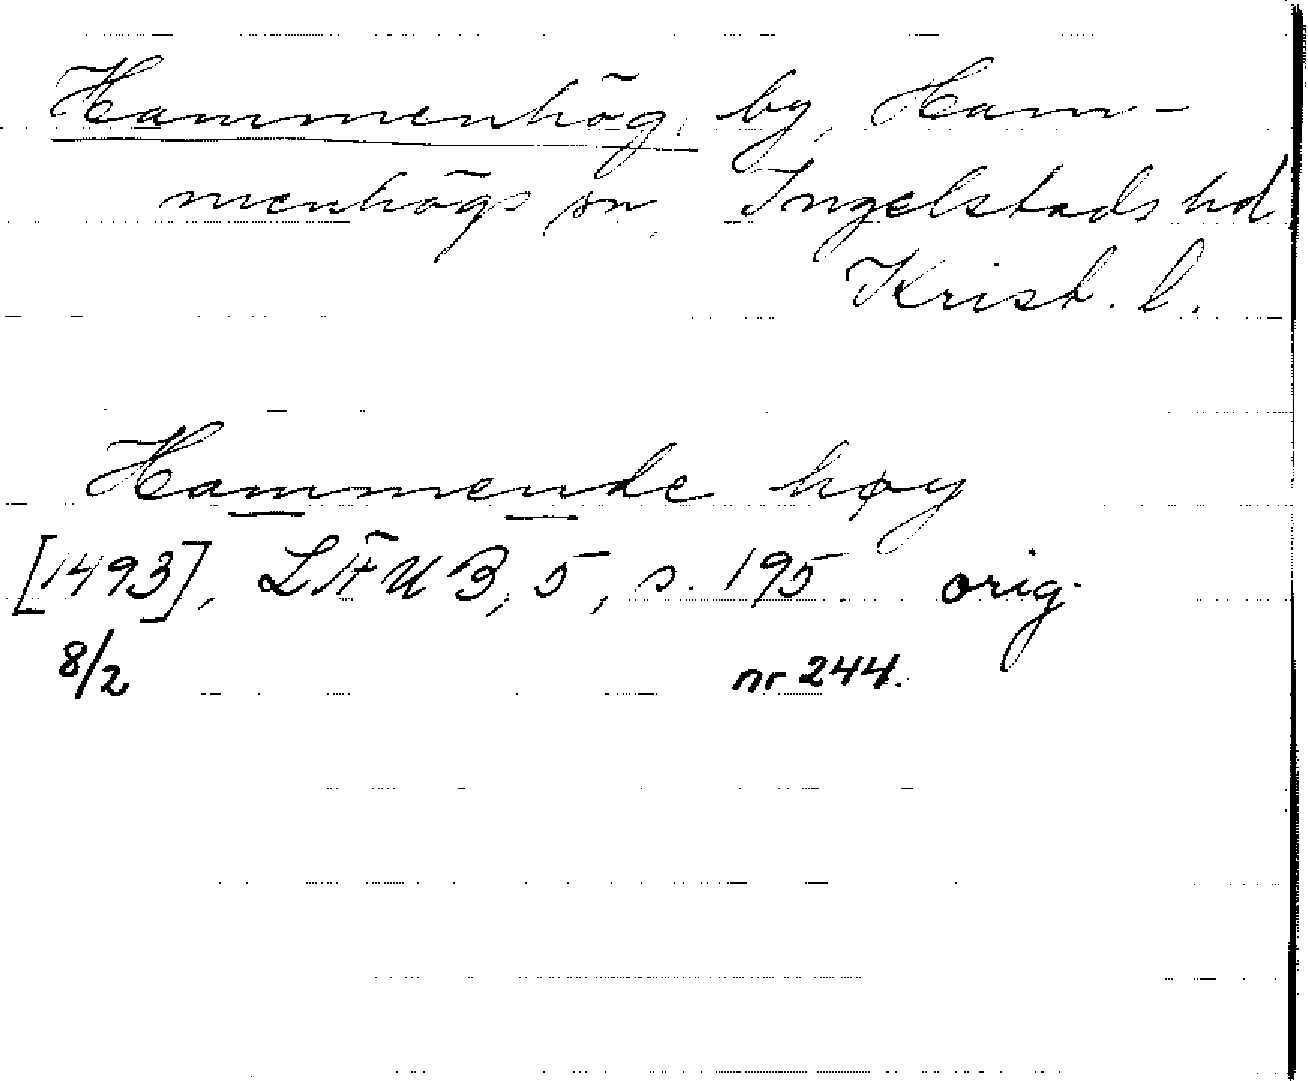 Hammenhög, by, Ham-
menhögs sn, Ingelstads hd
Krist. l.
Hammende høy
[1493], LFUB, 5, s. 195. orig.
8/2 nr 244.